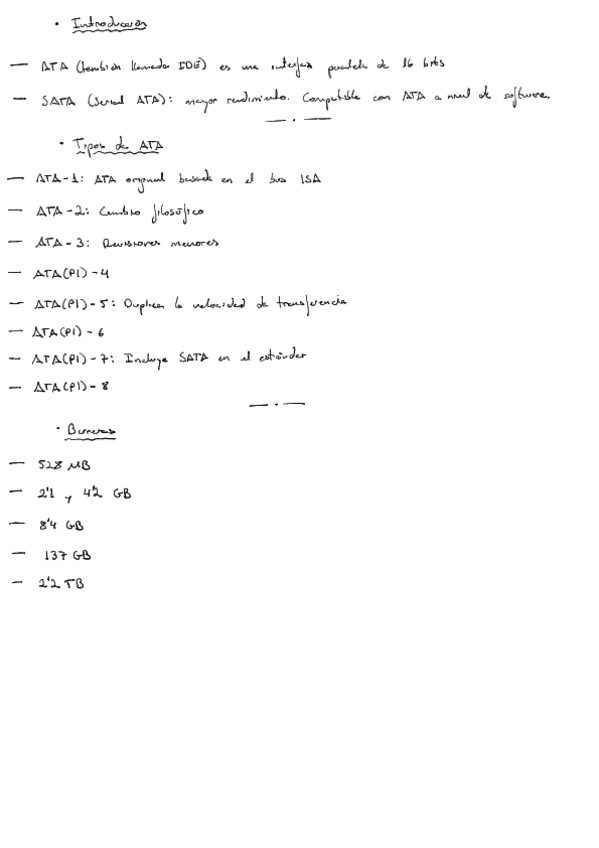 • Introducción
— ATA (también llamada IDE) es una interfaz paralela de 16 bits
— SATA (Serial ATA): mayor rendimiento. Compatible con ATA a nivel de software.
— . —
• Tipos de ATA
— ATA-1: ATA original basada en el bus ISA
— ATA-2: Cambio filosófico
— ATA-3: Revisiones menores
— ATA(PI)-4
— ATA(PI)-5: Duplica la velocidad de transferencia
— ATA(PI)-6
— ATA(PI)-7: Incluye SATA en el estándar
— ATA(PI)-8
— . —
• Barreras
— 528 MB
— 2'1 y 4'2 GB
— 8'4 GB
— 137 GB
— 2'2 TB